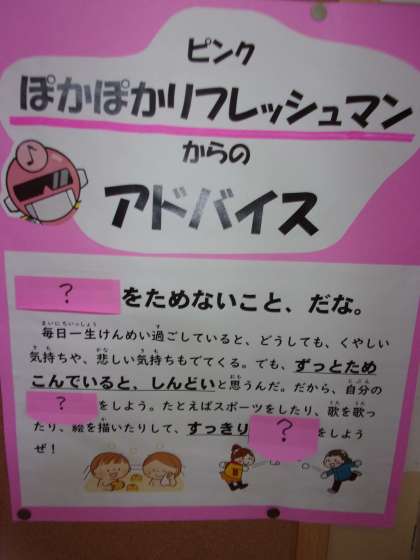 ピンク
ぽかぽかリフレッシュマン
からの
アドバイス
?をためないこと、だな。
毎日一生けんめい過ごしていると、どうしても、くやしい
気持ちや、悲しい気持ちもでてくる。でも、ずっとため
こんでいると、しんどいと思うんだ。だから、自分の
?をしよう。たとえばスポーツをしたり、歌を歌っ
たり、絵を描いたりして、すっきり?をしよう
ぜ！